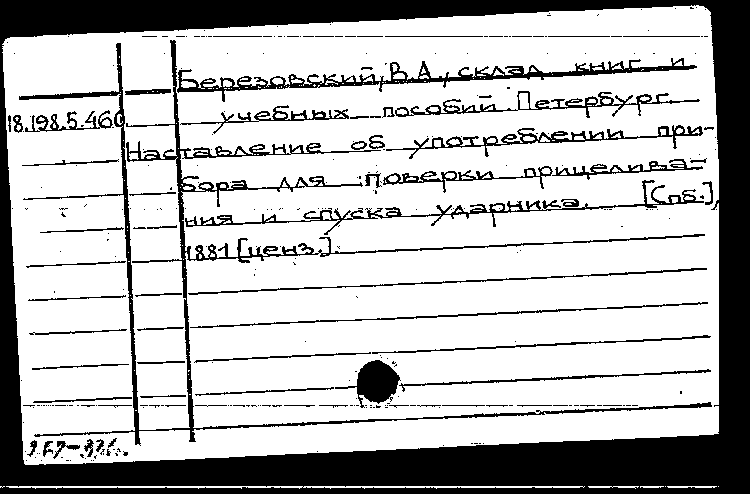 Березовский, В.А., склад книг и
18.198.5.460. учебных пособий. Петербург.
Наставление об употреблении при-
бора для поверки прицелива-
ния и спуска ударника. [Спб.],
1881 [ценз.].